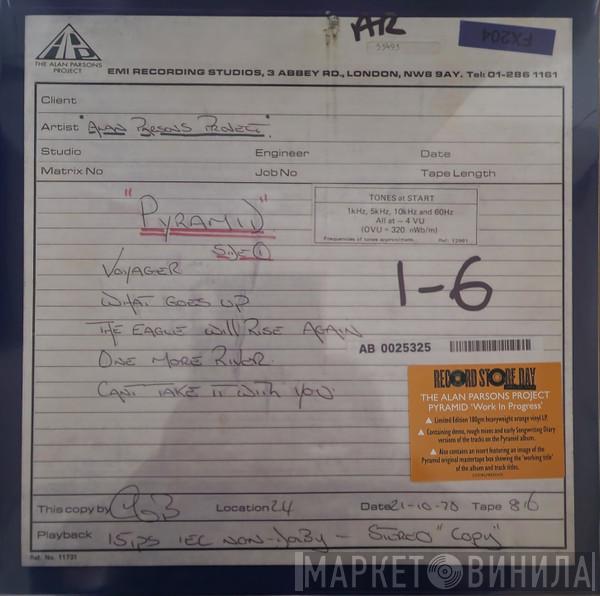 ATR
53493
FX204
THE ALAN PARSONS
PROJECT
EMI RECORDING STUDIOS, 3 ABBEY RD., LONDON, NW8 9AY. Tel: 01-286 1161
Client
Artist "ALAN PARSONS PROJECT."
Studio Engineer Date
Matrix No Job No Tape Length
"PYRAMID"
SIDE 1
TONES at START
1kHz, 5kHz, 10kHz and 60Hz
All at – 4 VU
(OVU = 320 nWb/m)
Frequencies of tones approximate. Ref: 12981
VOYAGER
WHAT GOES UP
THE EAGLE WILL RISE AGAIN
ONE MORE RIVER.
CANT TAKE IT WITH YOU.
1-6
AB 0025325
RECORD STORE DAY
THE ALAN PARSONS PROJECT
PYRAMID 'Work In Progress'
Limited Edition 180gm heavyweight orange vinyl LP.
Containing demo, rough mixes and early Songwriting Diary
versions of the tracks on the Pyramid album.
Also contains an insert featuring an image of the
Pyramid original mastertape box showing the 'working title'
of the album and track titles.
This copy by Location 24 Date 21-10-78 Tape 816
Playback 15 ips IEC NON-DOLBY - STEREO "COPY"
Ref. No. 11731
МАРКЕТ ВИНИЛА